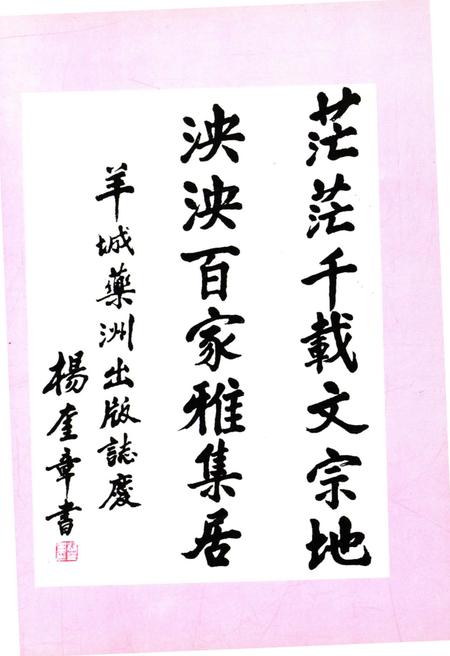 茫茫千載文宗地
泱泱百家雅集居
羊城藥洲出版誌慶
楊奎章書